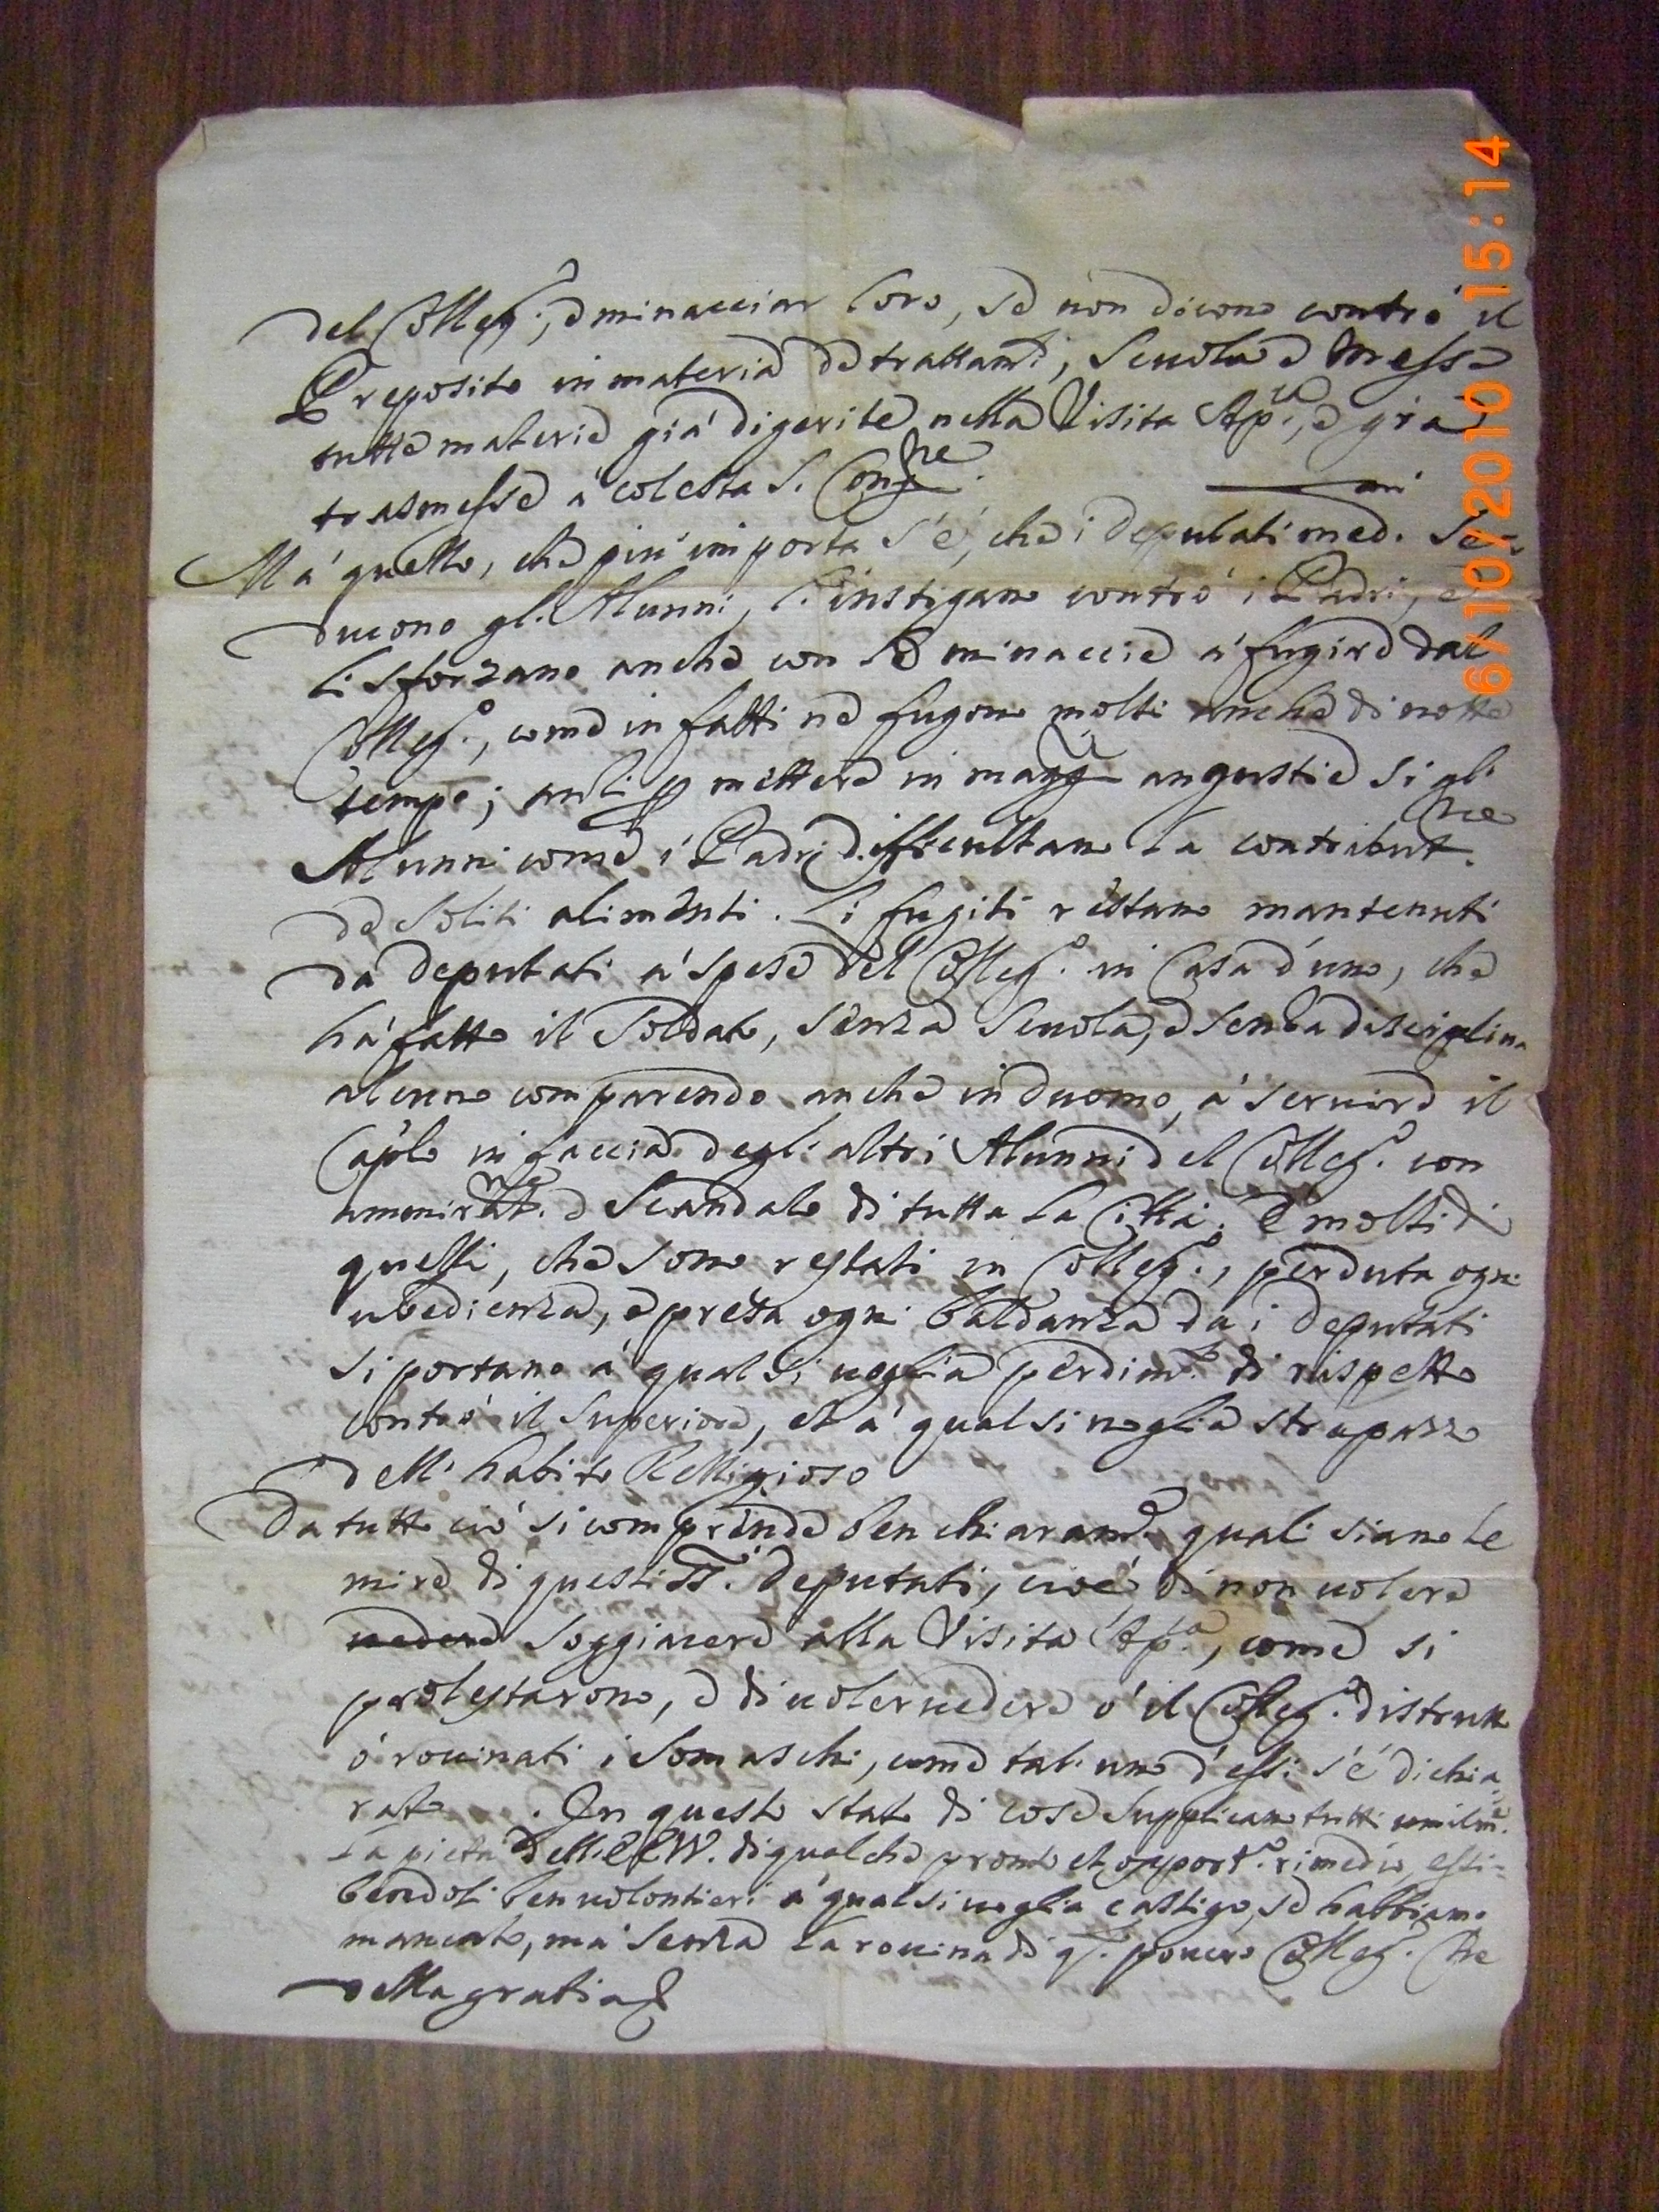 del Colleg.o, e minacciar loro, se non dicono contro il
Preposito in materia de trattam.ti, Scuola e Messe
tutte materie già digerite nella Visita Ap.ca, e già
trasmesse à cotesta S. Cong.ne
Mà quello, che più importa s'è, che i deputati med.mi se-
ducono gl'Alunni, l'instigano contro i Padri, e
li sforzano anche con le minaccie à fugire dal
Colleg.o, come in fatti ne fugono molti anche di notte
tempo; anzi p mettere in magg.ri angustie si gl'
Alunni come i Padri difficultano la contribut.ne
de soliti alimenti. Li fugiti restano mantenuti
da deputati à spese del Colleg.o in Casa d'uno, che
hà fatto il Soldato, senza Scuola, e senza disciplina
alcuna comparendo anche in duomo, à servire il
Cap.lo in faccia degl'altri Alunni del Colleg.o con
ammirat.ne e Scandalo di tutta la Città. E molti di
questi, che sono restati in Colleg.o, perduta ogni
ubedienza, e presa ogni baldanza da i deputati
si portano à qual si voglia perdim.to di rispetto
contro il Superiore, et à qual si voglia strapazzo
dell'habito Religioso
Da tutto ciò si comprende ben chiaram.e quali siano le
mire di questi SS.i deputati, cioè di non volere
vedere soggiacere alla Visita Ap.ca, come si
protestarono, e di voler vedere ò il Colleg.o distrutto
ò rovinati i Somaschi, come tal'uno d'essi s'è dichia-
rato. In questo stato di cose supplicano tutti umilm.e
la pietà dell'EE.VV. di qualche pronto et opport.o rimedio, essi-
bendoli ben volontieri à qual si voglia castigo, se habbiamo
mancato, mà senza la rovina di q.to povero Colleg.o Che
della gratia &
6/10/2010 15:14